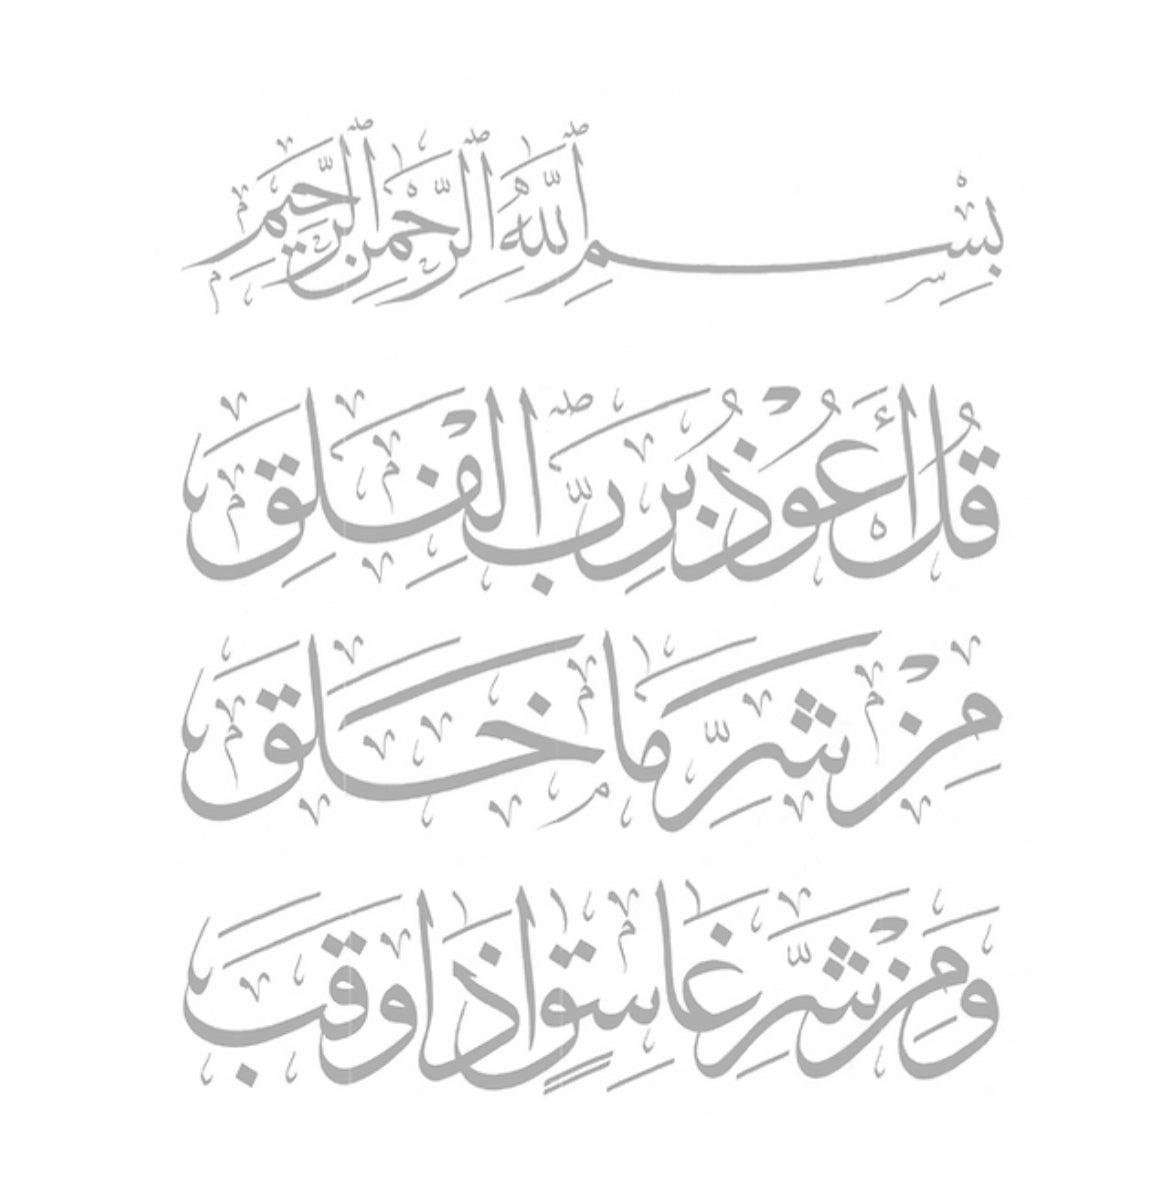 بِسْمِ ٱللَّهِ ٱلرَّحْمٰنِ ٱلرَّحِيمِ
قُلْ أَعُوْذُ بِرَبِّ ٱلْفَلَقِ
مِنْ شَرِّ مَا خَلَقَ
وَمِنْ شَرِّ غَاسِقٍ إِذَا وَقَبَ